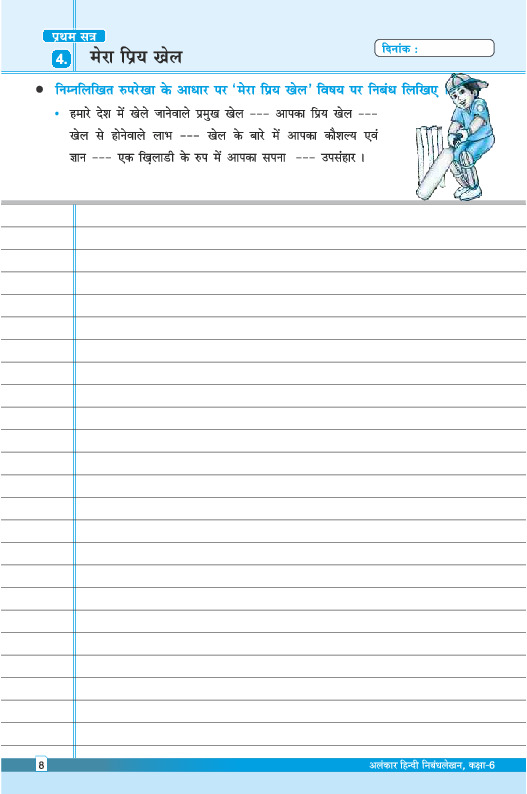 प्रथम सत्र
4. मेरा प्रिय खेल
दिनांक :
● निम्नलिखित रुपरेखा के आधार पर ‘मेरा प्रिय खेल’ विषय पर निबंध लिखिए
• हमारे देश में खेले जानेवाले प्रमुख खेल --- आपका प्रिय खेल ---
खेल से होनेवाले लाभ --- खेल के बारे में आपका कौशल्य एवं
ज्ञान --- एक खिलाडी के रुप में आपका सपना --- उपसंहार ।
8
अलंकार हिन्दी निबंधलेखन, कक्षा-6